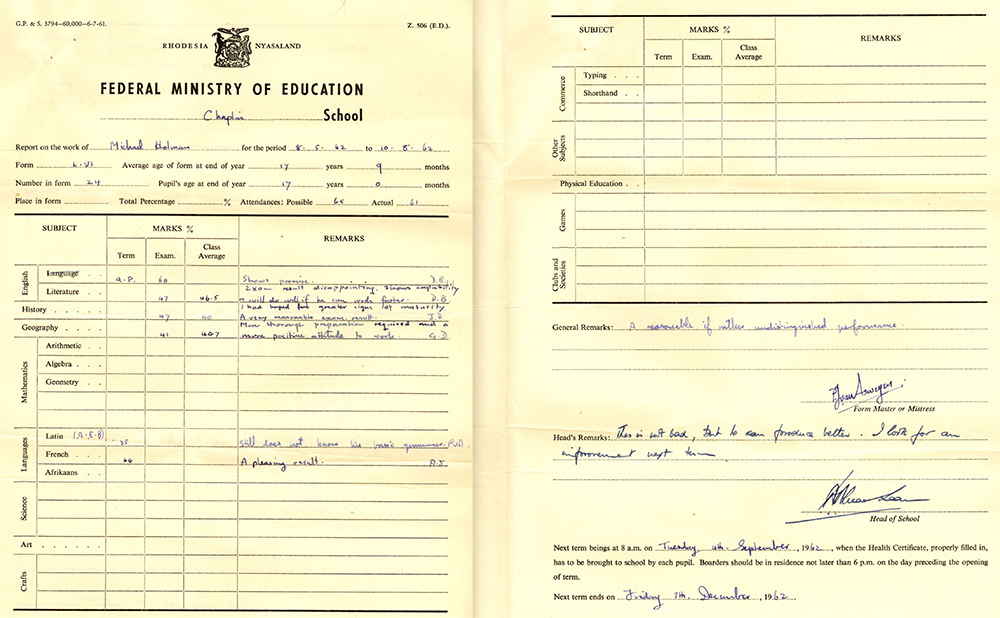 G.P. & S. 3794—60,000—6-7-61.
Z. 506 (E.D.).
RHODESIA NYASALAND
FEDERAL MINISTRY OF EDUCATION
Chaplin School
Report on the work of Michael Holman for the period 8. 5. 62 to 10. 8. 62
Form L.VI Average age of form at end of year 17 years 9 months
Number in form 24 Pupil's age at end of year 17 years 0 months
Place in form Total Percentage % Attendances: Possible 65 Actual 61
SUBJECT MARKS % REMARKS
Term Exam. Class Average
English
Language . . a.P. 60 Shows promise. D.B.
Literature . . 47 46.5 Exam result disappointing. Shows
& will do well if he can work faster. D.B.
History . . . . 47 40 I had hoped for greater signs of maturity
A very reasonable exam. result. J.D.
Geography . . . 41 46.7 More thorough preparation required and a
more positive attitude to work. G.D.
Mathematics
Arithmetic . .
Algebra . . .
Geometry . .
Languages
Latin (A.E.B) 38 Still does not know his basic grammar.
French . . . 64 A pleasing result. A.J.
Afrikaans . .
Science
Art . . . . . .
Crafts
SUBJECT MARKS % REMARKS
Term Exam. Class Average
Commerce
Typing . . .
Shorthand . .
Other Subjects
Physical Education . .
Games
Clubs and Societies
General Remarks: A reasonable if rather undistinguished performance.
Form Master or Mistress
Head's Remarks: This is not bad, but he can produce better. I look for an
improvement next term
Head of School
Next term beings at 8 a.m. on Tuesday 4th. September, 1962, when the Health Certificate, properly filled in,
has to be brought to school by each pupil. Boarders should be in residence not later than 6 p.m. on the day preceding the opening
of term.
Next term ends on Friday 7th. December, 1962.